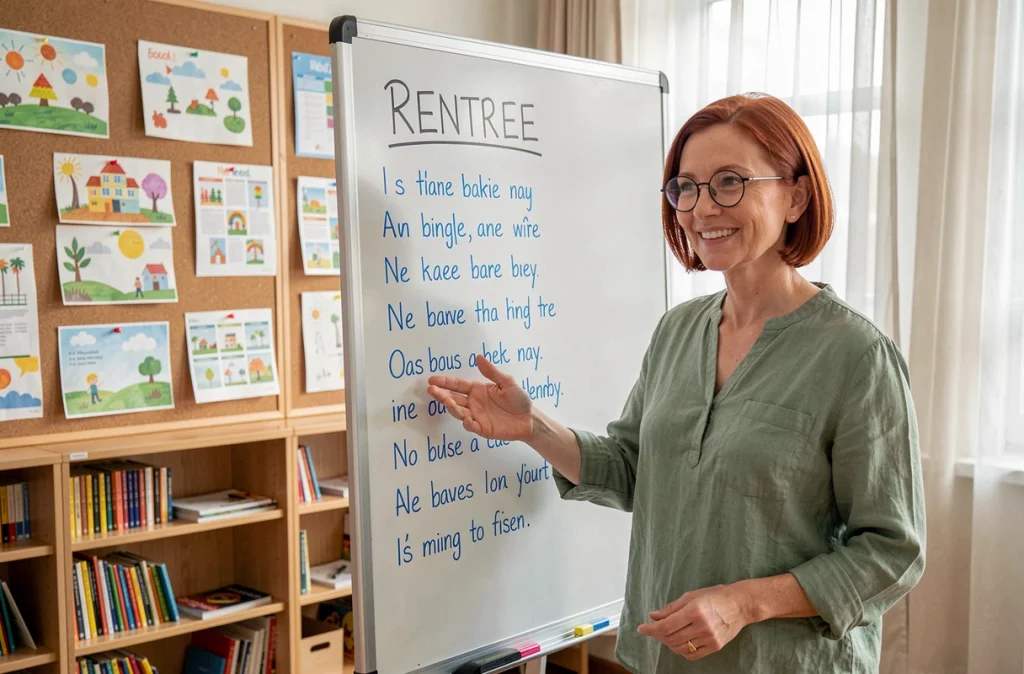 RENTREE
I s tiane bakie nay
An bingle, ane wire
Ne kaee bare biey.
Ne barve tha hind tre
Oas bous a bek nay.
ine
No bulse a
Ae baves lon yourt
I's miing to fisen.